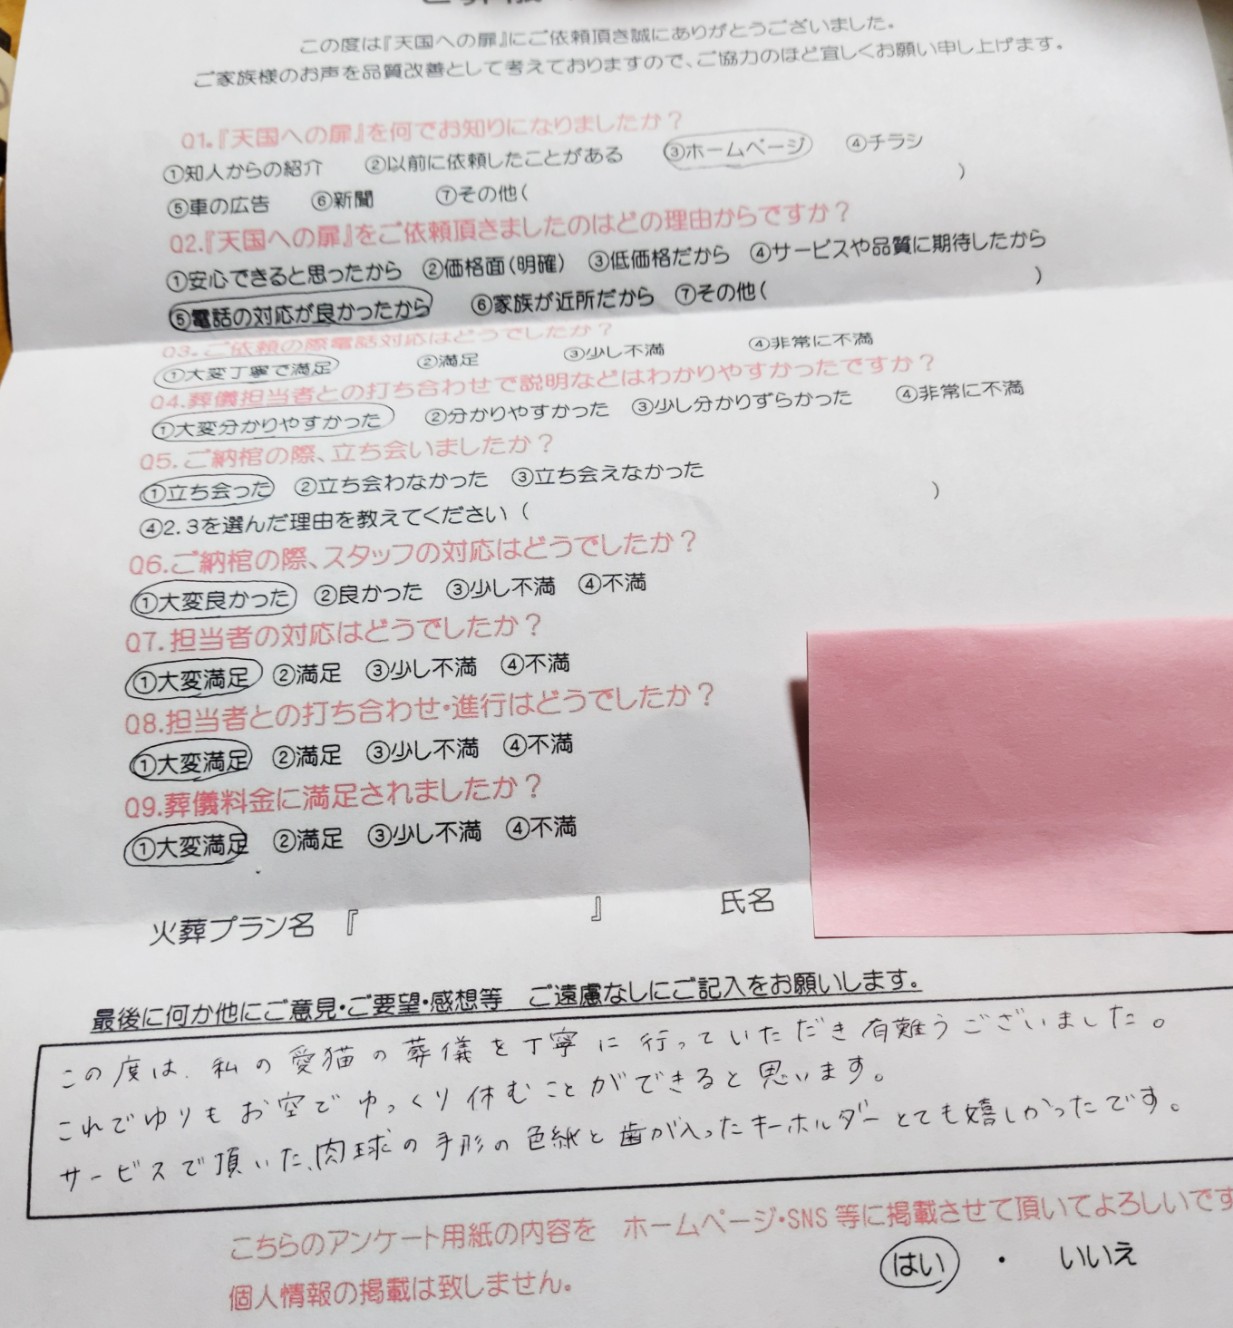 この度は『天国への扉』にご依頼頂き誠にありがとうございました。
ご家族様のお声を品質改善として考えておりますので、ご協力のほど宜しくお願い申し上げます。
Q1.『天国への扉』を何でお知りになりましたか？
①知人からの紹介 ②以前に依頼したことがある ③ホームページ ④チラシ
⑤車の広告 ⑥新聞 ⑦その他( )
Q2.『天国への扉』をご依頼頂きましたのはどの理由からですか？
①安心できると思ったから ②価格面(明確) ③低価格だから ④サービスや品質に期待したから
⑤電話の対応が良かったから ⑥家族が近所だから ⑦その他( )
Q3.ご依頼の際電話対応はどうでしたか？
①大変丁寧で満足 ②満足 ③少し不満 ④非常に不満
Q4.葬儀担当者との打ち合わせで説明などはわかりやすかったですか？
①大変分かりやすかった ②分かりやすかった ③少し分かりずらかった ④非常に不満
Q5.ご納棺の際、立ち会いましたか？
①立ち会った ②立ち会わなかった ③立ち会えなかった
④2.3を選んだ理由を教えてください( )
Q6.ご納棺の際、スタッフの対応はどうでしたか？
①大変良かった ②良かった ③少し不満 ④不満
Q7.担当者の対応はどうでしたか？
①大変満足 ②満足 ③少し不満 ④不満
Q8.担当者との打ち合わせ・進行はどうでしたか？
①大変満足 ②満足 ③少し不満 ④不満
Q9.葬儀料金に満足されましたか？
①大変満足 ②満足 ③少し不満 ④不満
火葬プラン名 『 』 氏名
最後に何か他にご意見・ご要望・感想等 ご遠慮なしにご記入をお願いします。
この度は、私の愛猫の葬儀を丁寧に行っていただき有難うございました。
これでゆりもお空でゆっくり休むことができると思います。
サービスで頂いた、肉球の手形の色紙と歯が入ったキーホルダーとても嬉しかったです。
こちらのアンケート用紙の内容を ホームページ・SNS等に掲載させて頂いてよろしいです
はい ・ いいえ
個人情報の掲載は致しません。